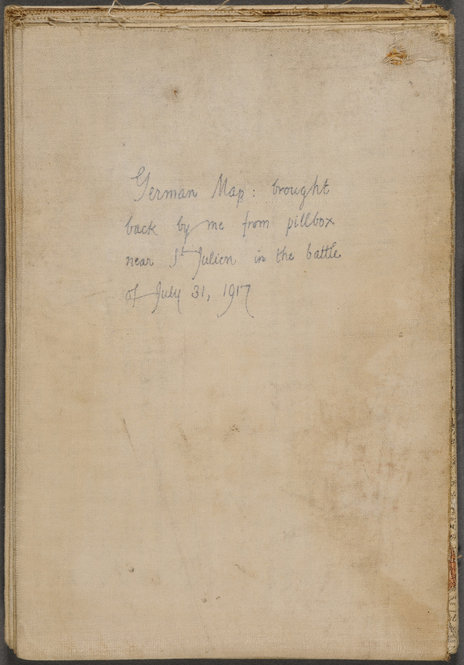 German Map: brought
back by me from pillbox
near St Julien in the battle
of July 31, 1917